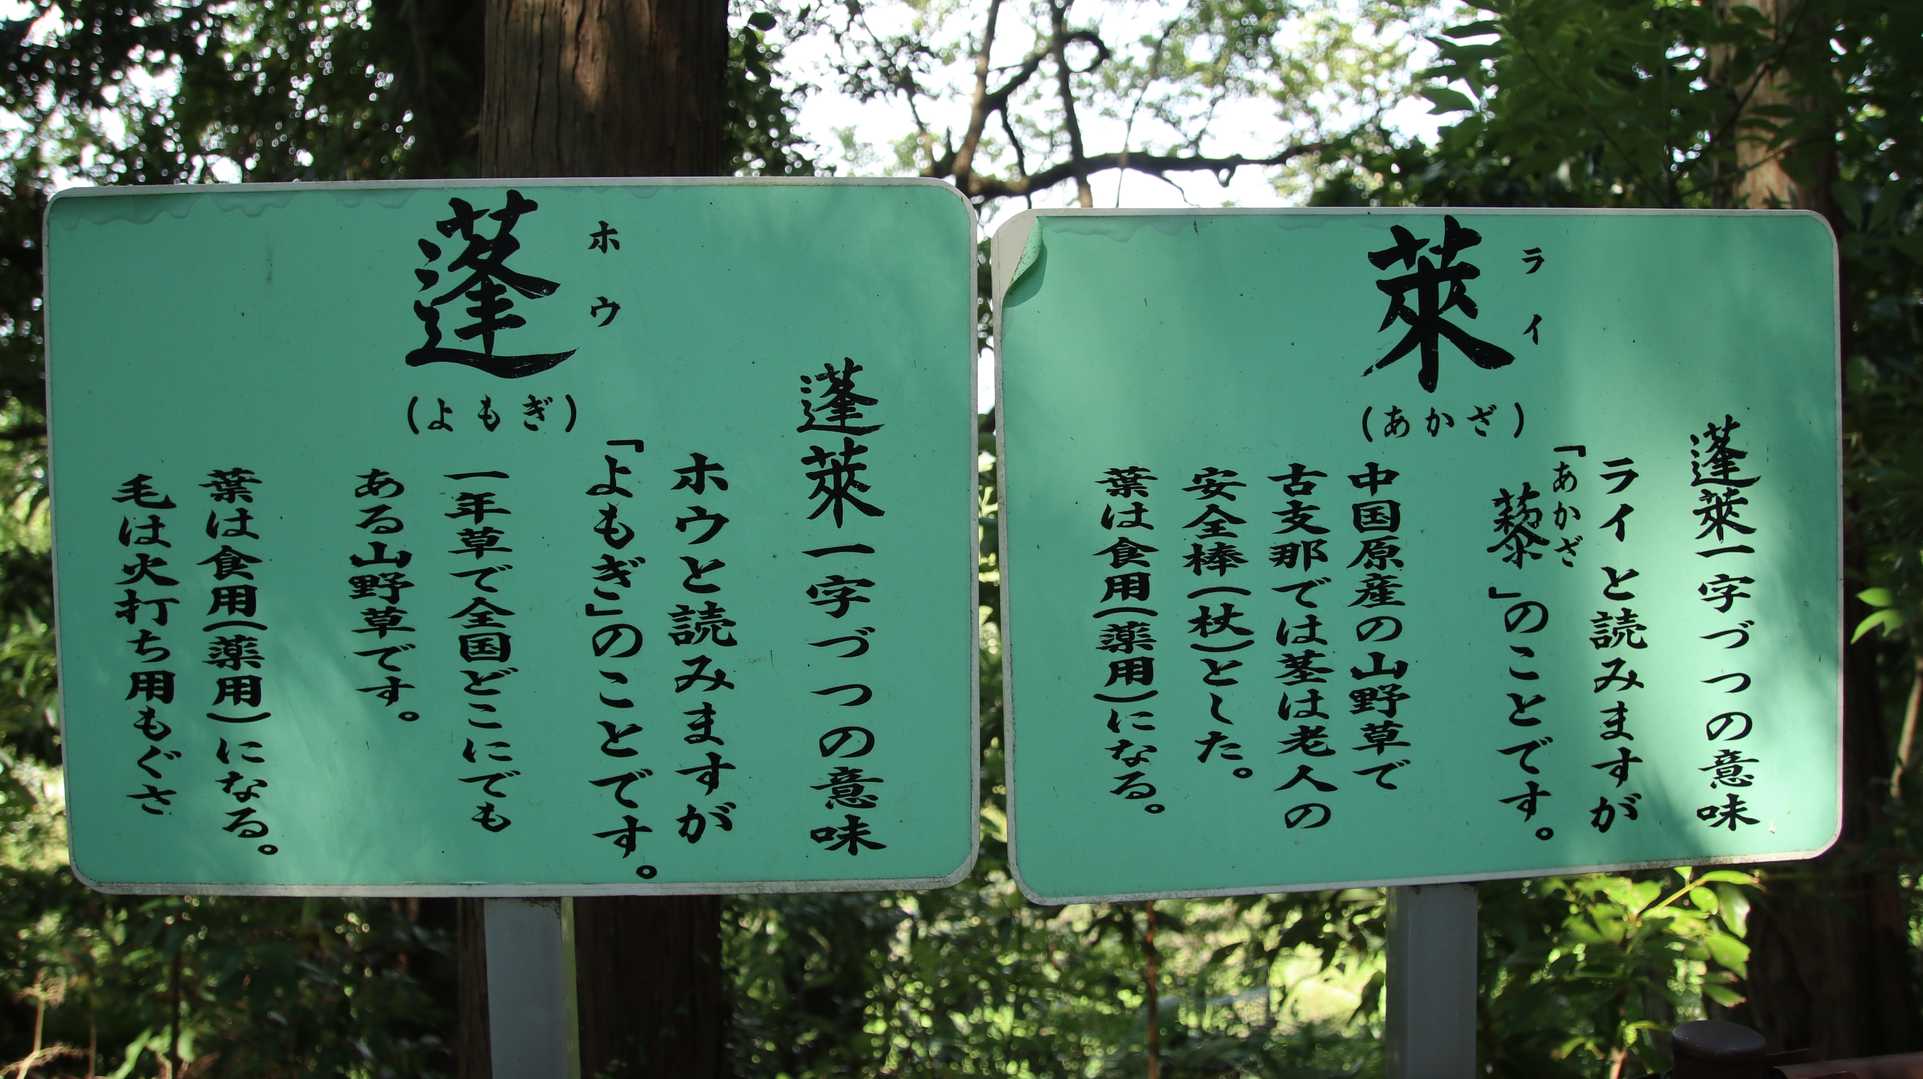 蓬
ホウ
(よもぎ)
蓬萊一字づつの意味
ホウと読みますが
「よもぎ」のことです。
一年草で全国どこにでも
ある山野草です。
葉は食用(薬用)になる。
毛は火打ち用もぐさ
萊
ライ
(あかざ)
蓬萊一字づつの意味
ライと読みますが
「あかざ
藜」のことです。
中国原産の山野草で
古支那では茎は老人の
安全棒(杖)とした。
葉は食用(薬用)になる。